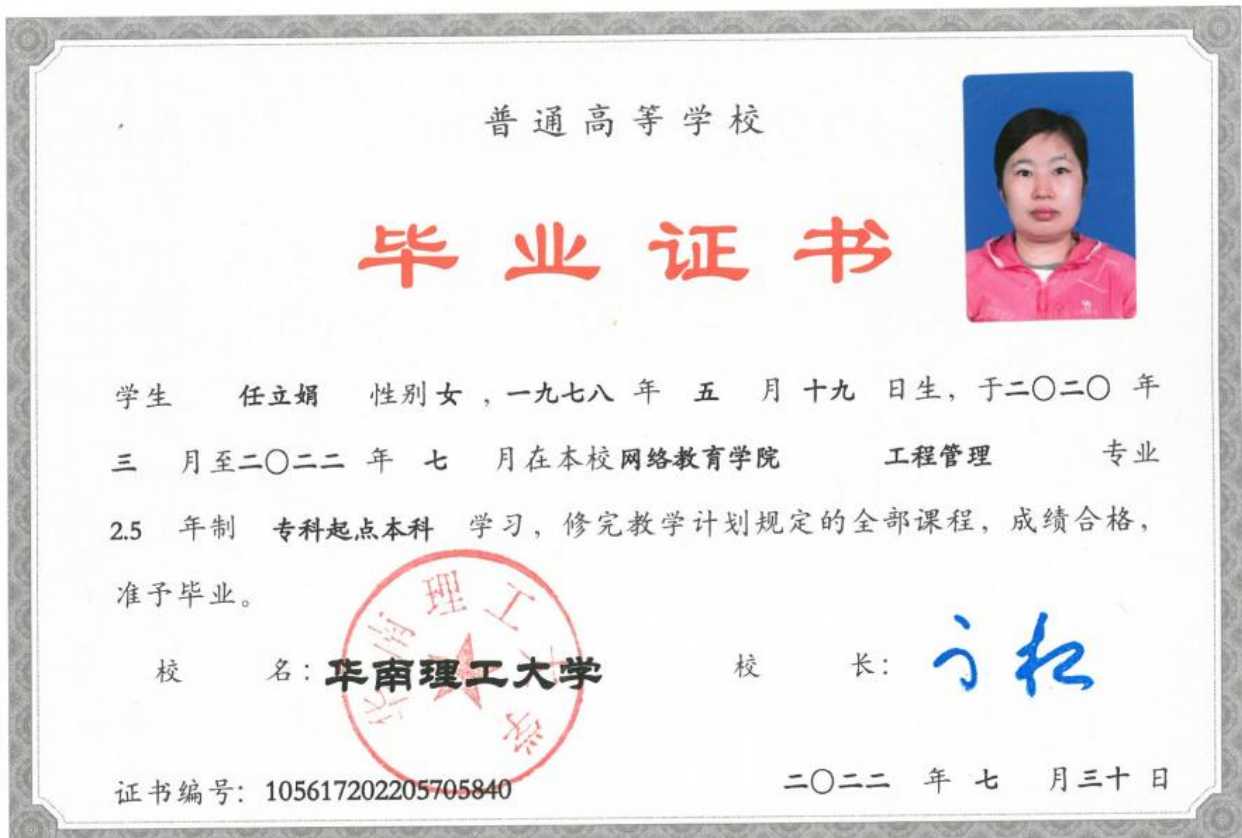 普通高等学校
毕业证书
学生 任立娟 性别 女 ，一九七八 年 五 月 十九 日生，于二〇二〇 年
三 月至二〇二二 年 七 月在本校网络教育学院 工程管理 专业
2.5 年制 专科起点本科 学习，修完教学计划规定的全部课程，成绩合格，
准予毕业。
华南理工大学
校 名：华南理工大学 校 长：
证书编号：105617202205705840 二〇二二 年 七 月三十 日